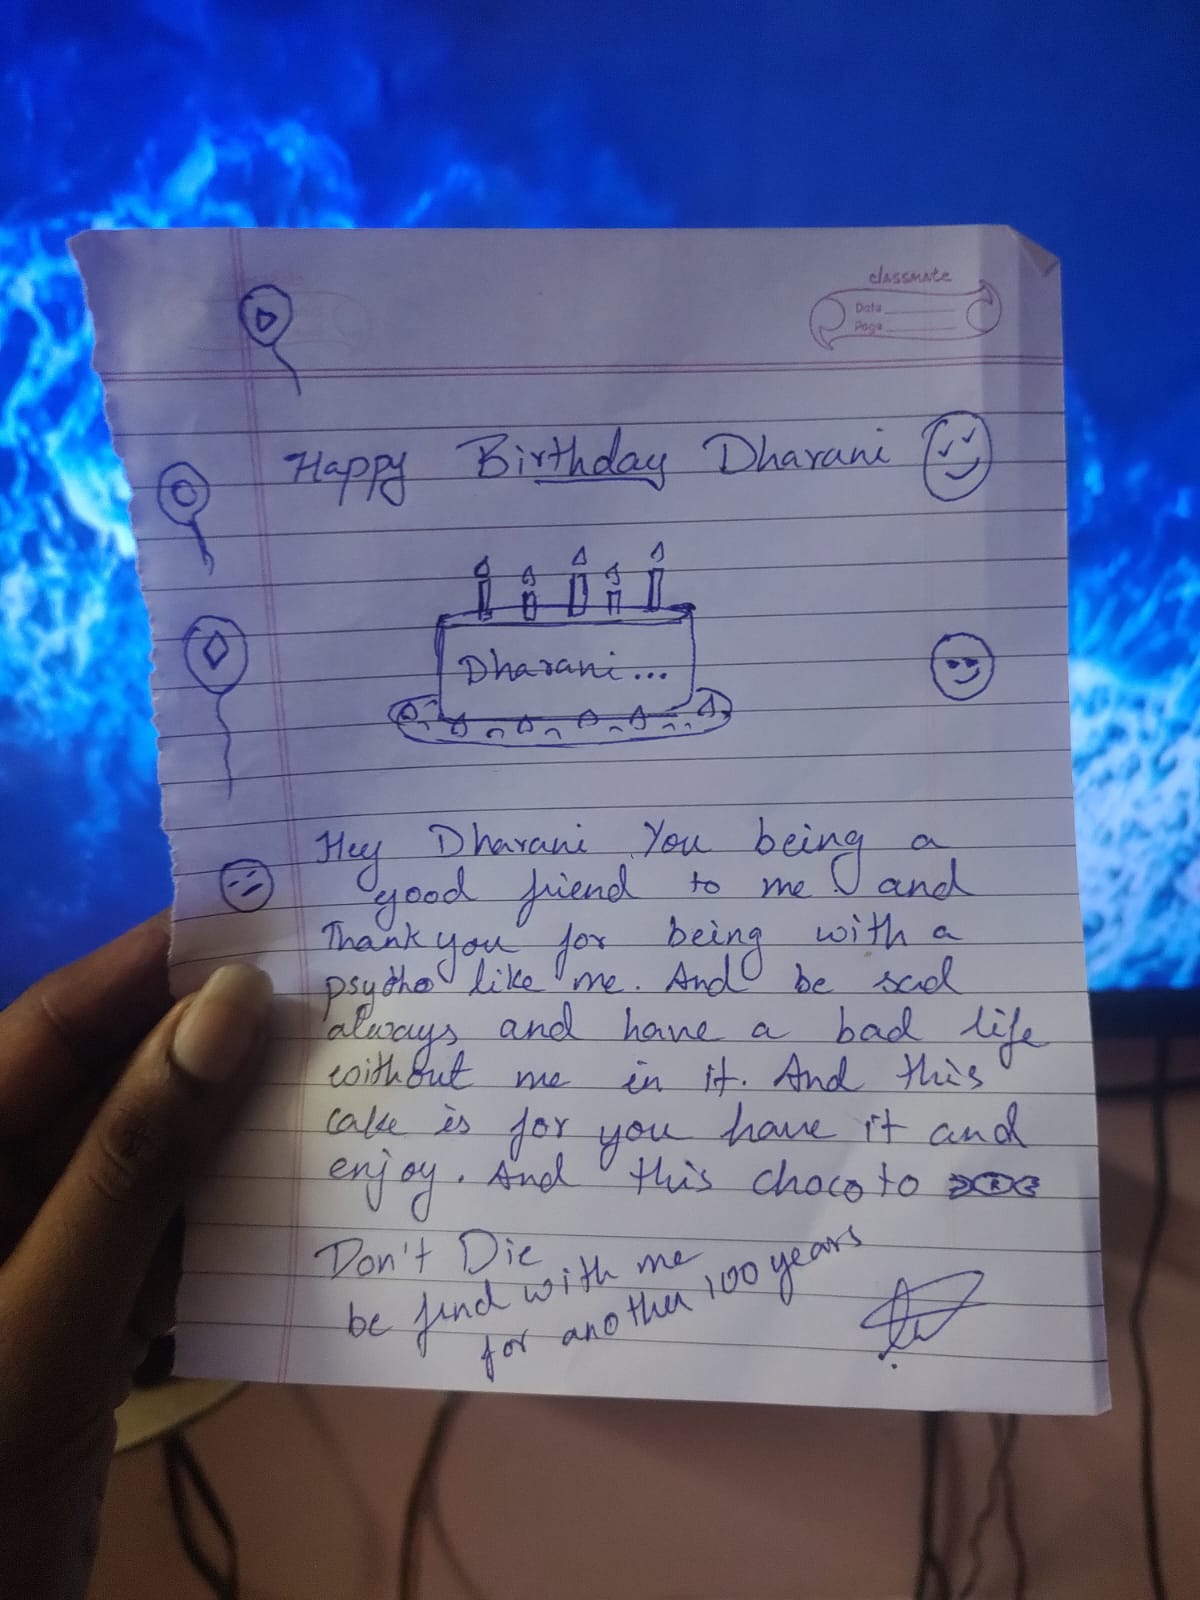 classmate
Date
Page
Happy Birthday Dharani
Dharani...
Hey Dharani You being a
good friend to me and
Thank you for being with a
psycho like me. And be sad
always and have a bad life
without me in it. And this
cake is for you have it and
enjoy. And this choco to
Don't Die
be find with me
for another 100 years